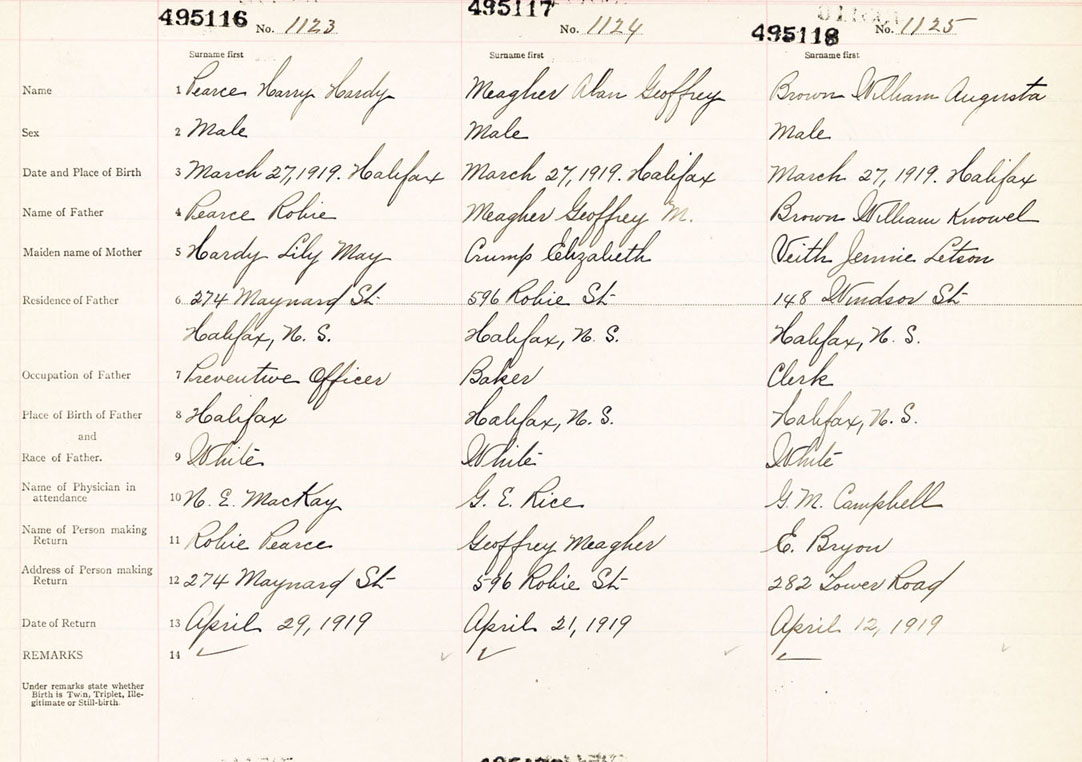 495116 No. 1123 495117 No. 1124 495118 No. 1125
Surname first Surname first Surname first
Name 1 Pearce Harry Hardy Meagher Alan Geoffrey Brown William Augusta
Sex 2 Male Male Male
Date and Place of Birth 3 March 27, 1919. Halifax March 27, 1919. Halifax March 27, 1919. Halifax
Name of Father 4 Pearce Robie Meagher Geoffrey M. Brown William Knowel
Maiden name of Mother 5 Hardy Lily May Crump Elizabeth Veith Jennie Letson
Residence of Father 6 274 Maynard St 596 Robie St 148 Windsor St
Halifax, N. S. Halifax, N. S. Halifax, N. S.
Occupation of Father 7 Preventive Officer Baker Clerk
Place of Birth of Father 8 Halifax Halifax, N. S. Halifax, N. S.
and
Race of Father. 9 White White White
Name of Physician in
attendance 10 N. E. MacKay G. E. Rice G. M. Campbell
Name of Person making
Return 11 Robie Pearce Geoffrey Meagher E. Bryon
Address of Person making
Return 12 274 Maynard St 596 Robie St 282 Tower Road
Date of Return 13 April 29, 1919 April 21, 1919 April 12, 1919
REMARKS 14
Under remarks state whether
Birth is Twin, Triplet, Ille-
gitimate or Still-birth.